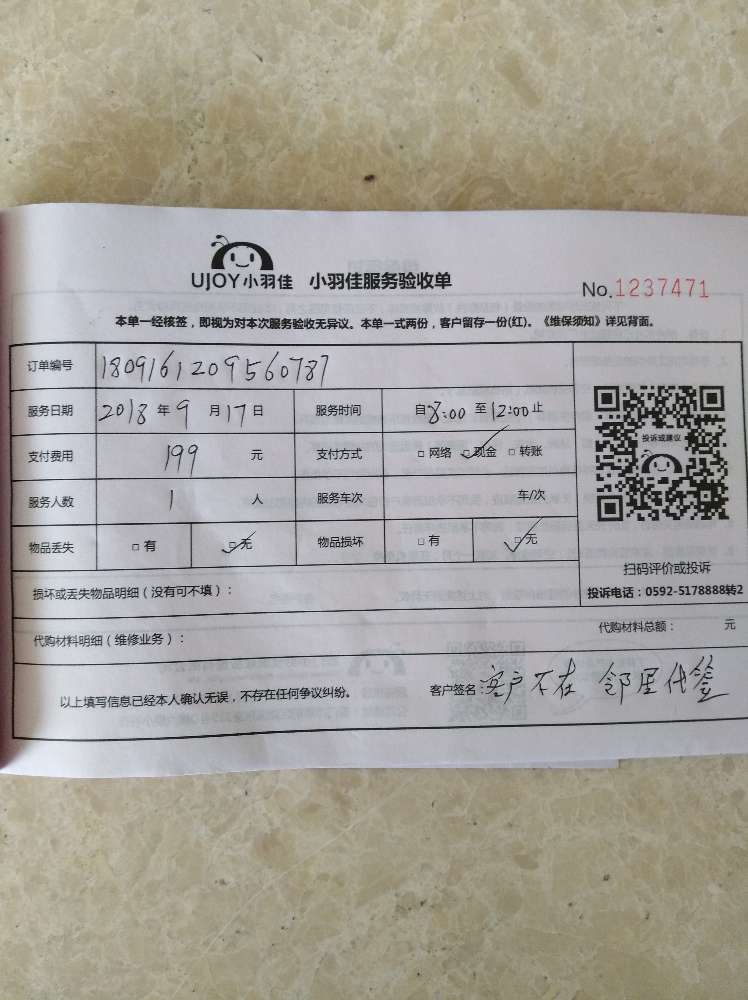 UJOY小羽佳 小羽佳服务验收单
No.1237471
本单一经核签，即视为对本次服务验收无异议。本单一式两份，客户留存一份(红)。《维保须知》详见背面。
订单编号 1809161209560787
服务日期 2018年9月17日 服务时间 自8:00至12:00止
支付费用 199 元 支付方式 □网络 ☑现金 □转账
服务人数 1 人 服务车次 车/次
物品丢失 □有 ☑无 物品损坏 □有 ☑无
投诉或建议
扫码评价或投诉
投诉电话：0592-5178888转2
损坏或丢失物品明细（没有可不填）：
代购材料明细（维修业务）： 代购材料总额： 元
以上填写信息已经本人确认无误，不存在任何争议纠纷。 客户签名：客户不在 邻居代签